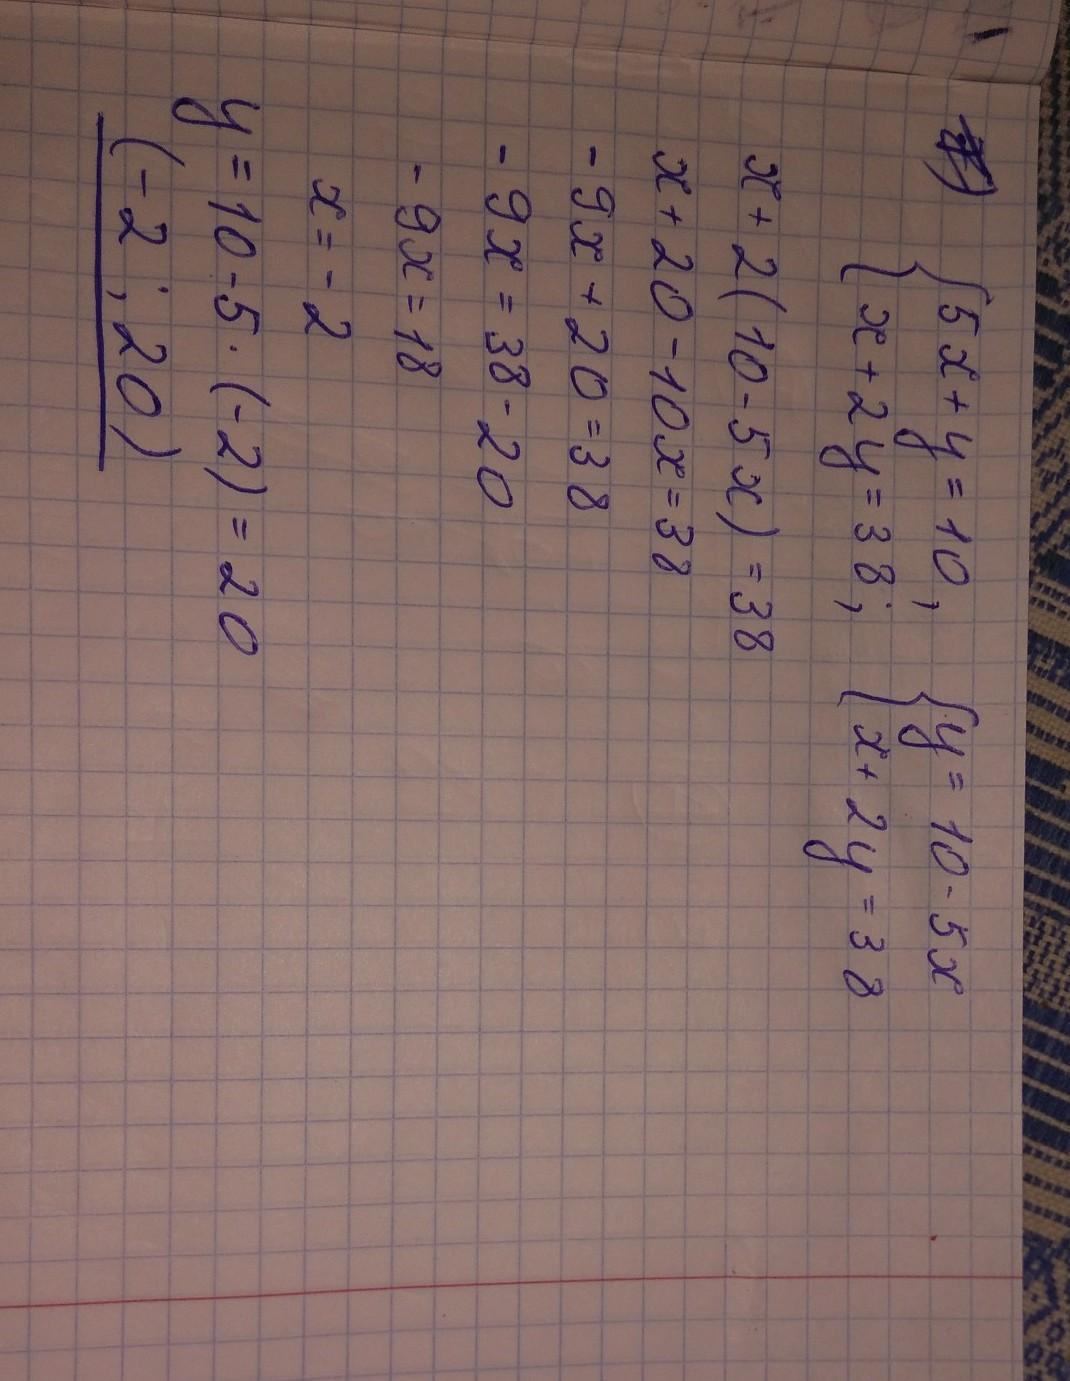 {5x + y = 10, {y = 10 - 5x
{x + 2y = 38; {x + 2y = 38
x + 2(10 - 5x) = 38
x + 20 - 10x = 38
- 9x + 20 = 38
- 9x = 38 - 20
- 9x = 18
x = - 2
y = 10 - 5 · (-2) = 20
(-2 ; 20)